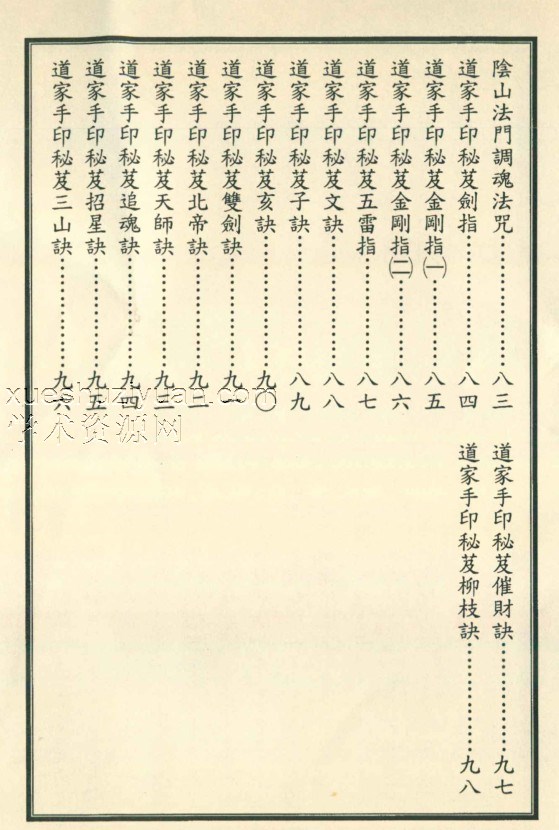 陰山法門調魂法咒………………八三
道家手印秘芨劍指………………八四
道家手印秘芨金剛指㈠…………八五
道家手印秘芨金剛指㈡…………八六
道家手印秘芨五雷指……………八七
道家手印秘芨文訣………………八八
道家手印秘芨子訣………………八九
道家手印秘芨亥訣………………九〇
道家手印秘芨雙劍訣……………九一
道家手印秘芨北帝訣……………九二
道家手印秘芨天師訣……………九三
道家手印秘芨追魂訣……………九四
道家手印秘芨招星訣……………九五
道家手印秘芨三山訣……………九六
道家手印秘芨催財訣……………九七
道家手印秘芨柳枝訣……………九八
xueshuziyuan.com
学术资源网